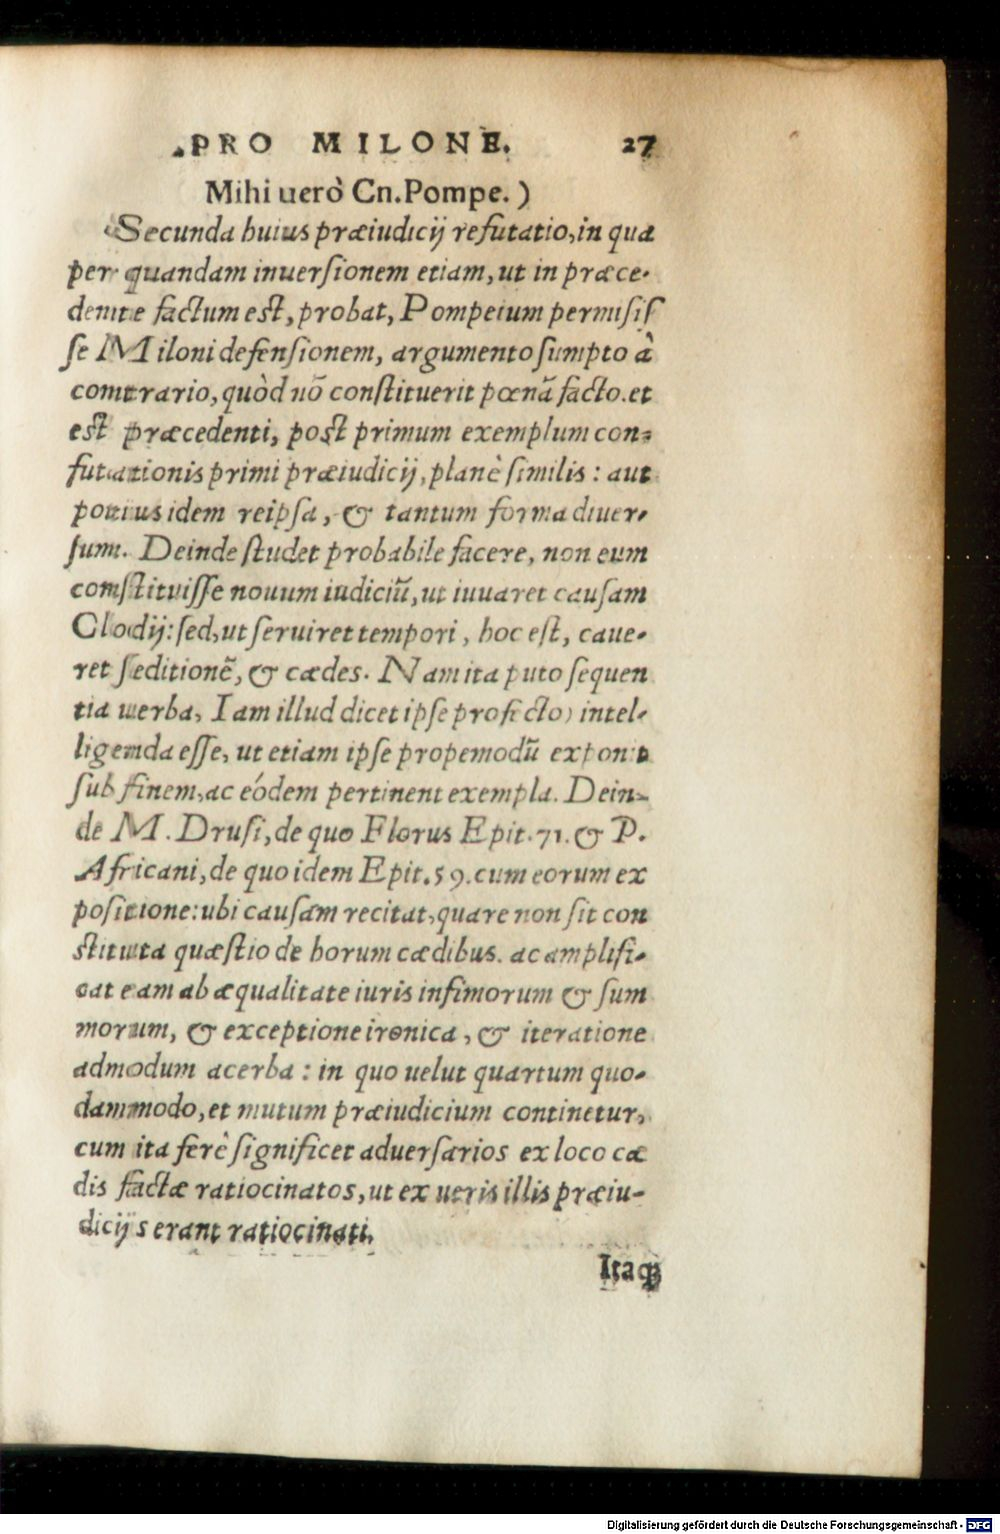 PRO MILONE. 27
Mihi uerò Cn.Pompe.)
Secunda huius præiudicij refutatio, in qua
per quandam inuersionem etiam, ut in præce-
dente factum est, probat, Pompeium permisis
se Miloni defensionem, argumento sumpto à
contrario, quòd nō constituerit pœnā facto. et
est præcedenti, post primum exemplum con-
futationis primi præiudicij, planè similis: aut
potius idem reipsa, & tantum forma diuer-
sum. Deinde studet probabile facere, non eum
constituisse nouum iudiciū, ut iuuaret causam
Clodij: sed, ut seruiret tempori, hoc est, caue-
ret seditionē, & cædes. Nam ita puto sequen
tia uerba, Iam illud dicet ipse profecto) intel-
ligenda esse, ut etiam ipse propemodū exponit
sub finem, ac eódem pertinent exempla. Dein-
de M. Drusi, de quo Florus Epit. 71. & P.
Africani, de quo idem Epit. 59. cum eorum ex
positione: ubi causam recitat, quare non sit con
stituta quæstio de horum cædibus. ac amplifi-
cat eam ab æqualitate iuris infimorum & sum
morum, & exceptione ironica, & iteratione
admodum acerba: in quo uelut quartum quo-
dammodo, et mutum præiudicium continetur,
cum ita ferè significet aduersarios ex loco cæ
dis factæ ratiocinatos, ut ex ueris illis præiu-
dicijs erant ratiocinati.
Itaq;
Digitalisierung gefördert durch die Deutsche Forschungsgemeinschaft - DFG